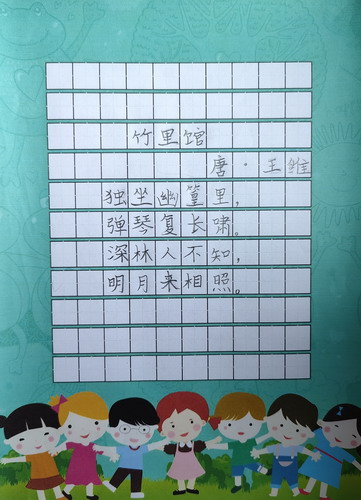 竹里馆
唐·王维
独坐幽篁里，
弹琴复长啸。
深林人不知，
明月来相照。